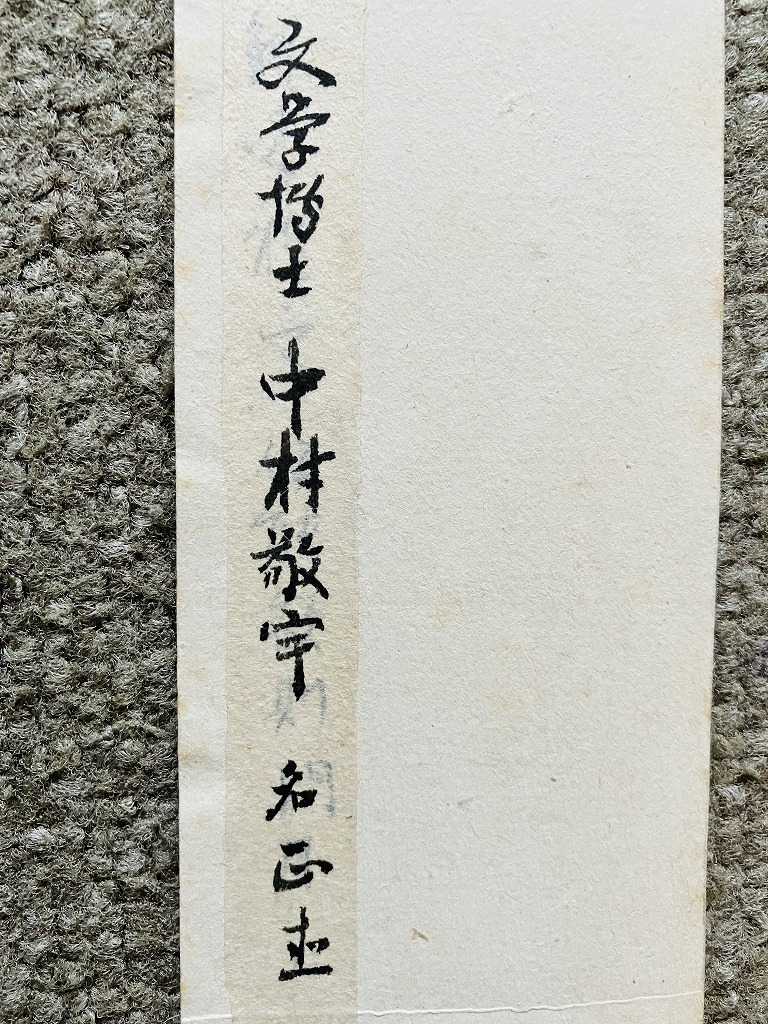 文学博士 中村敬宇 名正直